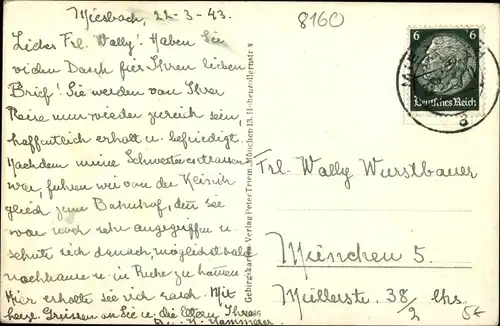 Miesbach, 22-3-43.
8160
Liebes Frl. Wally! Haben Sie
vielen Dank für Ihren lieben
Brief! Sie werden von Ihrer
Reise nun wieder zurück sein,
hoffentlich erholt u. befriedigt.
Nachdem meine Schwester entlassen
war, fuhren wir von der Klinik
gleich zum Bahnhof, denn sie
war noch sehr angegriffen u.
sehnte sich danach, möglichst bald
nachhause u. in Ruhe zu kommen
Hier erholte sie sich rasch. Mit
herzl. Grüssen an Sie u. die Eltern Ihre
Gebirgskarten Verlag Peter Triem, München 13, Hohenzollernstr. 8
6 6
Deutsches Reich
a
Frl. Wally Wurstbauer
München 5.
Müllerstr. 38/
2
5€